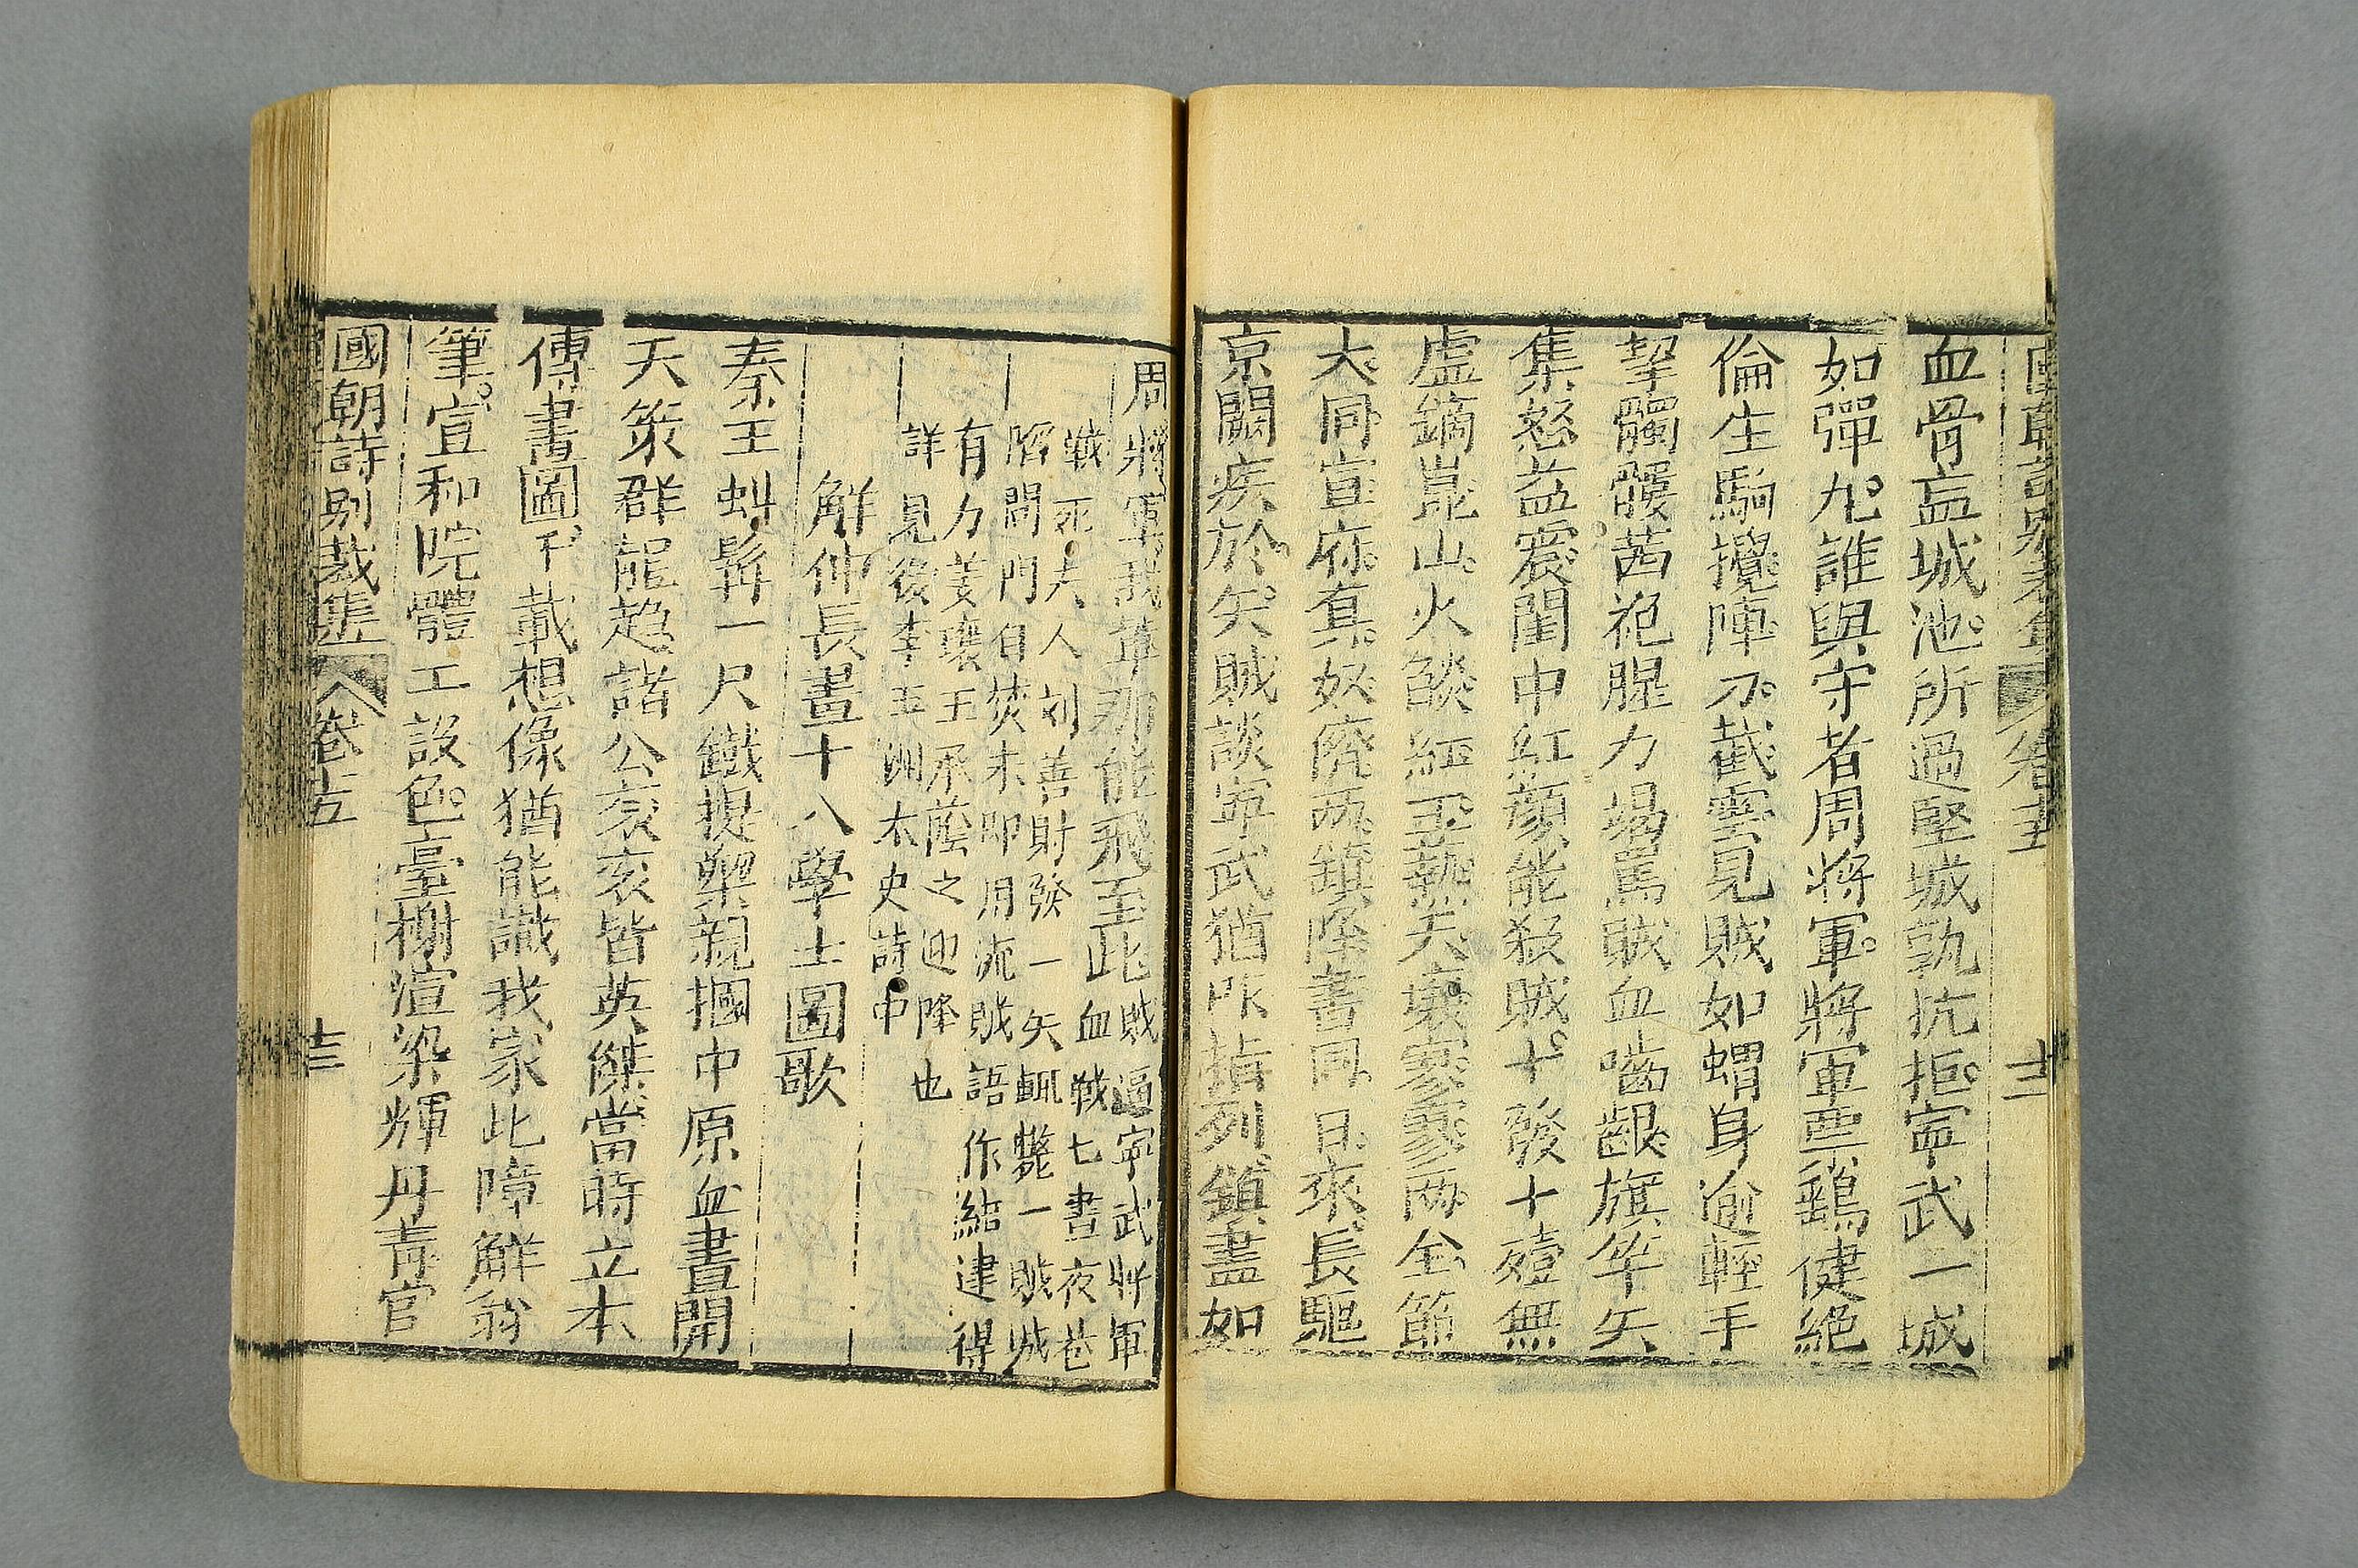 國朝詩別裁集 卷十五 十二
血骨盈城池。所過堅城孰抗拒。寧武一城
如彈丸。誰與守者周將軍。將軍票鷂健絕
倫。生駒攪陣刀截雲。見賊如蝟身逾輕。手
挈髑髏茜袍腥。力竭罵賊血噛齦。旗竿矢
集怒益震。閨中紅顏能殺賊。十發十殪無
虛鏑。崑山火燄紅玉熱。天壤寥寥兩全節。
大同宣府真奴僕。兩鎮降書同日來。長驅
京闕疾於矢。賊談寧武猶咋指。列鎮盡如
周將軍。我輩那能飛至此。賊逼寧武將軍血戰七晝夜巷
戰死。夫人刘善財發一矢輒斃一賊城
陷閤門自焚未即用流賊語作結建得
有力姜瓖王承蔭之迎降也
詳見後李玉洲太史詩中
解仲長畫十八學士圖歌
秦王虯髯一尺鐵。提槊親摑中原血。晝開
天策群龍趨。諸公袞袞皆英傑。當時立本
傳畫圖。千載想像猶能識。我家此障解翁
筆。宣和院體工設色。臺榭渲染輝丹青。官
國朝詩別裁集 卷十五 十三